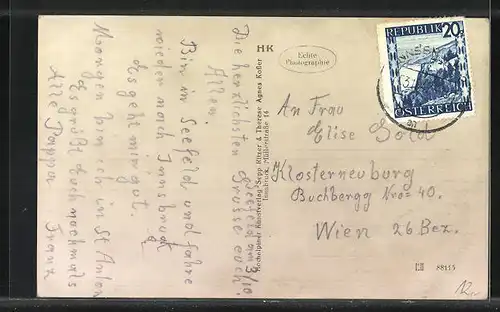 Seefeld am 3/10
Die herzlichsten Grüsse euch
Allen.
Bin in Seefeld und fahre
wieder nach Innsbruck
Es geht mir gut.
Morgen bin ich in St Anton
Es grüßt Euch nochmals
Alle Pappa Franz
HK
Hochalpiner Kunstverlag Sepp Ritzer & Therese Agnes Kofler
Innsbruck, Müllerstraße 14
Echte
Photographie
REPUBLIK 20
ÖSTERREICH
An Frau
Elise Gold
Klosterneuburg
Buchbergg Nro= 40.
Wien 26 Bez.
88155